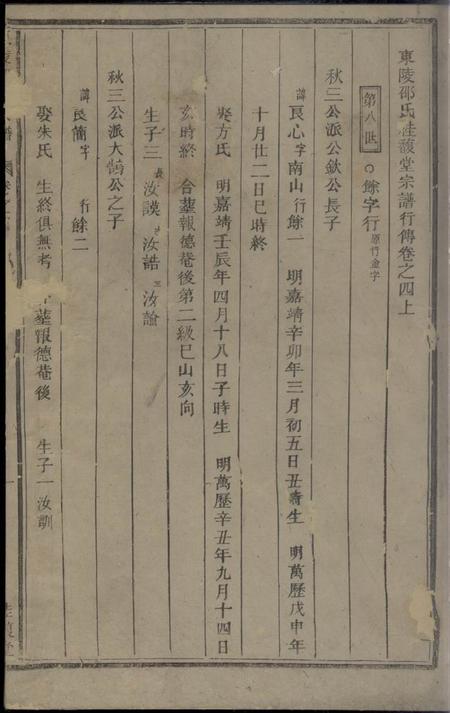 東陵邵氏桂馥堂宗譜行傳卷之四上
第八世 ○ 餘字行 原竹金字
秋三公派公欽公長子
諱良心 字南山 行餘一 明嘉靖辛卯年三月初五日丑時生 明萬歷戊申年
十月廿二日巳時終
娶方氏 明嘉靖壬辰年四月十八日子時生 明萬歷辛丑年九月十四日
亥時終 合塟報德菴後第二級巳山亥向
生子三 長汝謨 汝誥 三汝諭
秋三公派大鶴公之子
諱良簡 字 行餘二
娶朱氏 生終俱無考 塟報德菴後 生子一 汝訓